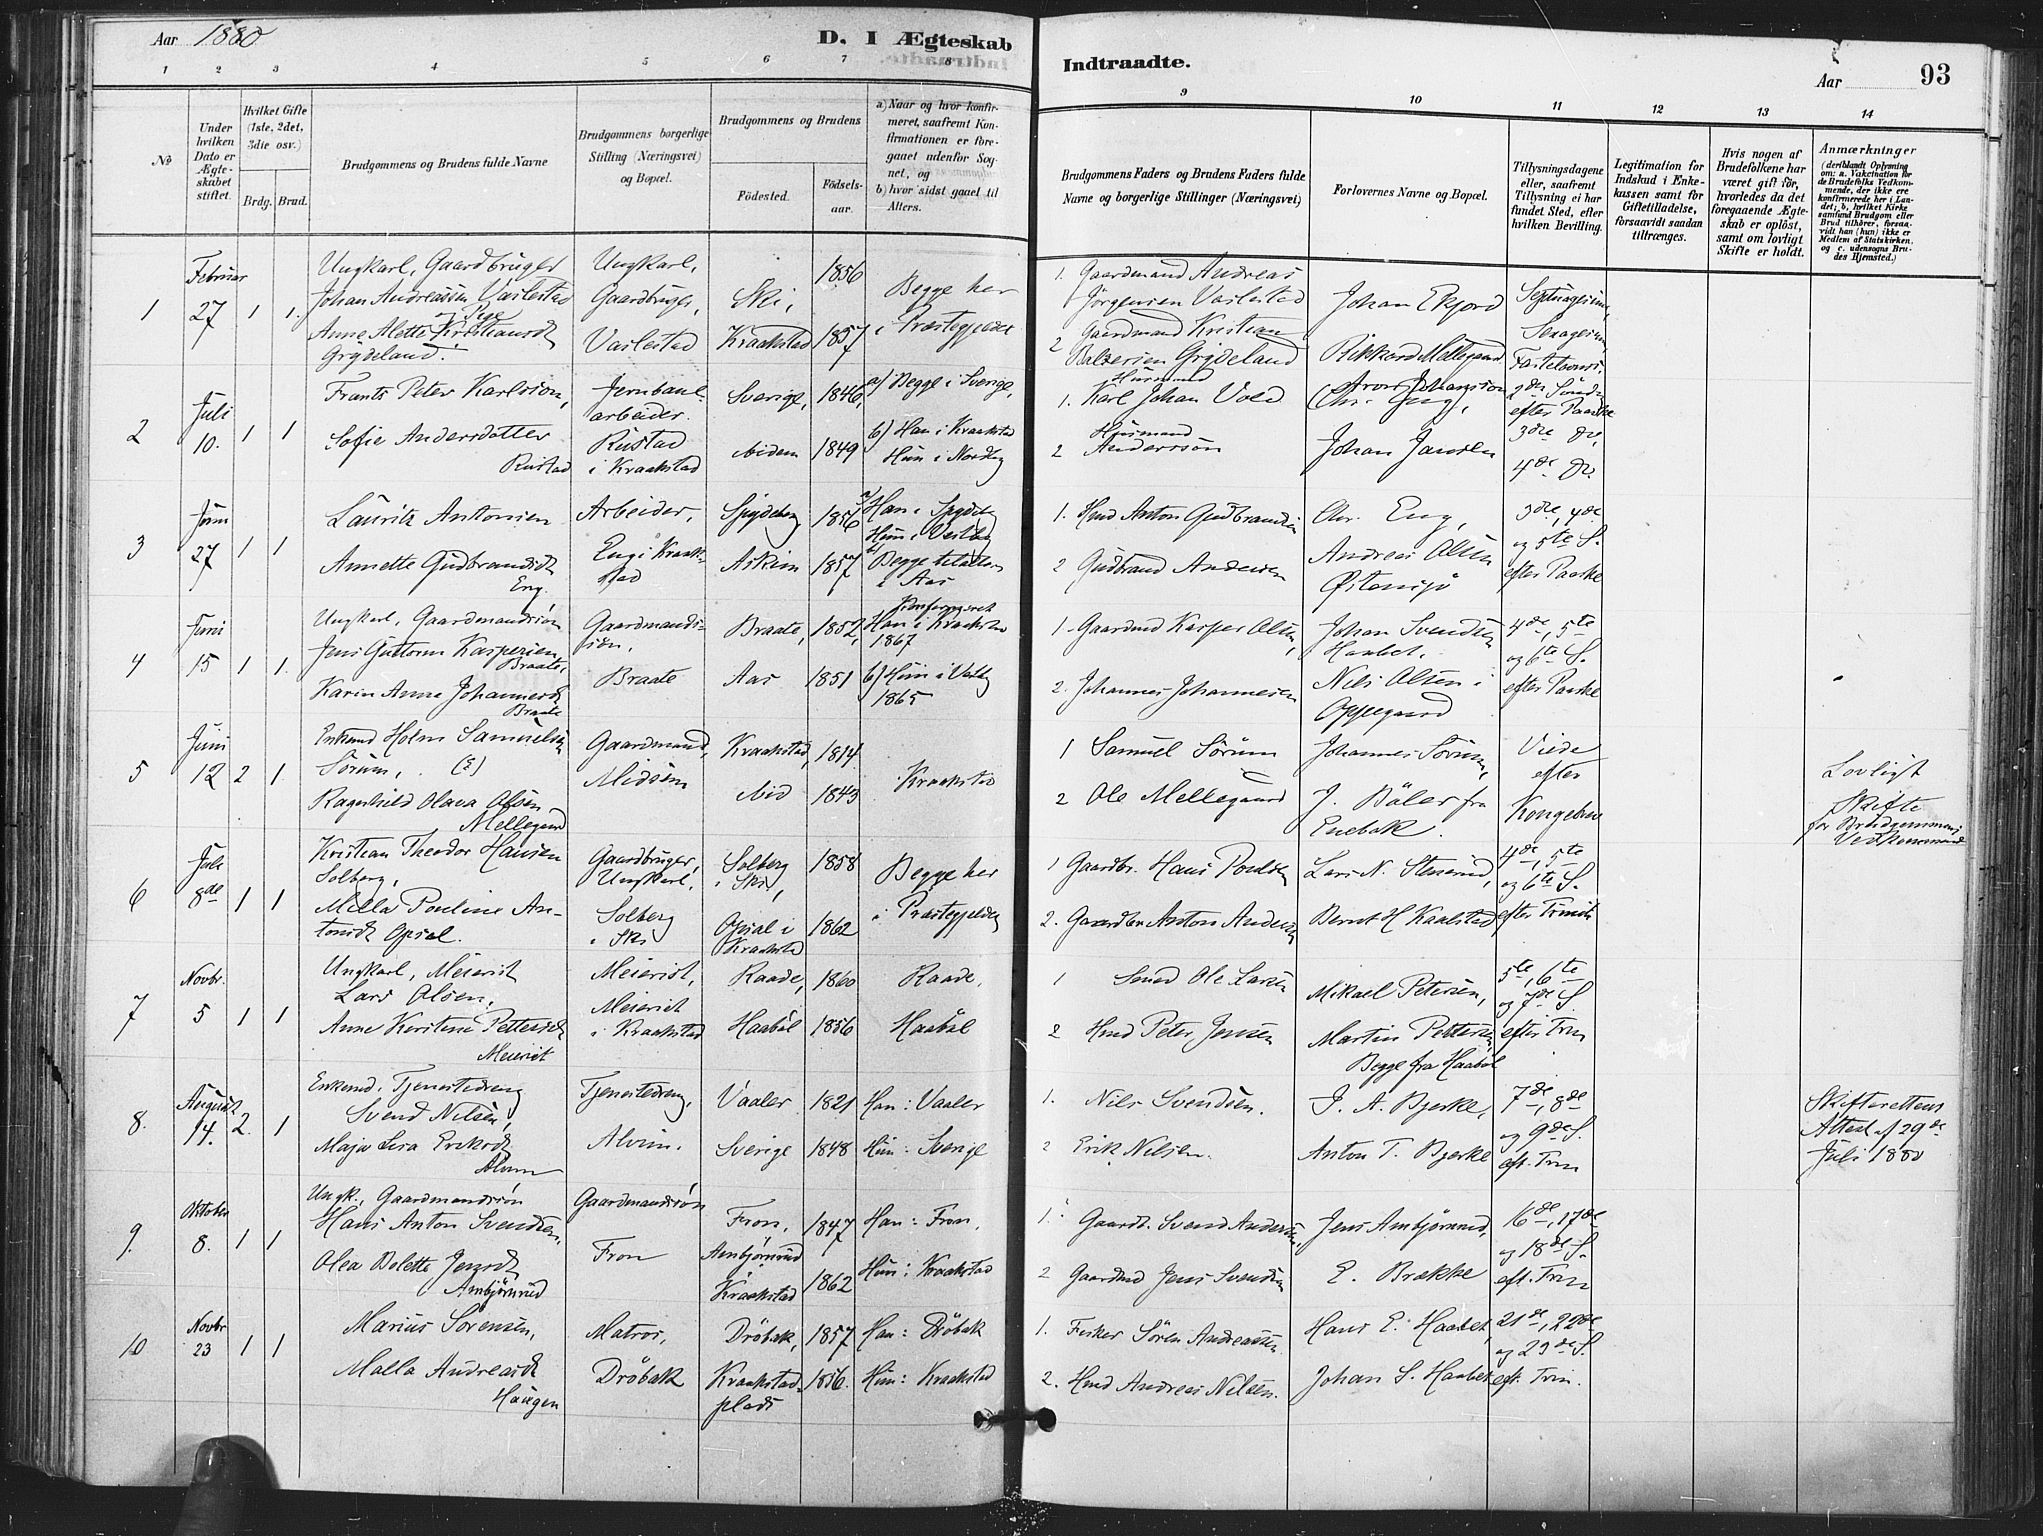 Aar 1880
D. I Ægteskab
Indtraadte.
Aar 93
1 2 3 4 5 6 7 8 9 10 11 12 13 14
No
Under hvilken Dato er Ægteskabet stiftet.
Hvilket Gifte (1ste, 2det, 3die osv.)
Brdg. Brud.
Brudgommens og Brudens fulde Navne
Brudgommens borgerlige Stilling (Næringsvei) og Bopæl.
Brudgommens og Brudens
Fødested.
Fødselsaar.
a) Naar og hvor konfirmeret, saafremt Konfirmationen er foregaaet udenfor Sognet, og
b) hvor sidst gaaet til Alters.
Brudgommens Faders og Brudens Faders fulde Navne og borgerlige Stillinger (Næringsvei)
Forlovernes Navne og Bopæl.
Tillysningsdagene eller, saafremt Tillysning ei har fundet Sted, efter hvilken Bevilling.
Legitimation for Indskud i Enkekassen samt for Giftetilladelse, forsaavidt saadan tiltrænges.
Hvis nogen af Brudefolkene har været gift før, hvorledes da det foregaaende Ægteskab er opløst, samt om lovligt Skifte er holdt.
Anmærkninger (deriblandt Oplysning om: a. Vakcination for de Brudefolks Vedkommende, der ikke ere konfirmerede her i Landet; b. hvilket Kirkesamfund Brudgom eller Brud tilhører, forsaavidt han (hun) ikke er Medlem af Statskirken, og c. udensogns Brudes Hjemsted.)
1 Februar 27 1 1. Ungkarl, Gaardbruger Johan Andreassen Vaslestad Anne Alette Kristiansdt Grydeland. Ungkarl, Gaardbruger, Vaslestad Ski, Kraakstad 1856 1857 Begge her i Præstegjeldet
1. Gaardmand Andreas Jørgensen Vaslestad 2 Gaardmand Kristian Balzersen Grydeland Johan Ekjord Rikkard Mellegaard Septuagesim, Sexagesim, Fastelavns.
2 Juli 10. 1 1 Frants Peter Karlsson, Sofie Andersdatter Rustad Jernbanearbeider. Rustad i Kraakstad Sverige, ibidem 1846, 1849 a) Begge i Sverige, b) Han i Kraakstad Hun i Nordby
1. Husmand Karl Johan Vold 2 Husmand Andersson Aron Johansson Chr. Eng, Johan Jansen 2den Sønd. efter Paaske 3die Do, 4de Do.
3 Juni 27 1 1 Lauritz Antonsen Annette Gudbrandsdt Eng. Arbeider, Eng i Kraakstad Spydeberg Askim 1856 1857 a) Han i Spydeb Hun i Vestby b) Begge i Aas
1. Hmd Anton Gudbrandsen 2 Gudbrand Andersen Chr. Eng, Andreas Olsen Østensjø 3die, 4de og 5te S. efter Paaske
4 Juni 15 1 1. Ungkarl, Gaardmandssøn Jens Guttorm Kaspersen Braate, Karin Anne Johannesdt Braate Gaardmandssøn. Braate Braate, Aas 1852, 1851 Konfirmeret Han i Kraakstad 1867 b) Hun i Vestby 1865
1. Gaardmd Kasper Olsen, 2. Johannes Johannesen Johan Svendsen Haabet. Nils Olsen i Oppegaard 4de, 5te og 6te S. efter Paaske
5 Juni 12 2 1. Enkemd Holm Samuelsen Sørum, Ragnhild Olava Olsen Mellegaard Gaardmand, Midsem Kraakstad, ibid 1814 1843 Kraakstad
1 Samuel Sørum 2 Ole Mellegaard Johannes Sørum, J. Bøler fra Enebak. Viede efter Kongebrev Lovligt Skifte for Brudgommens Vedkommende
6 Juli 8de 1 1 Kristian Theodor Hansen Solberg, Milla Pauline Antonsdt Opsal. Gaardbruger, Ungkarl, Solberg i Ski Solberg i Ski, Opsal i Kraakstad 1858 1862 Begge her i Præstegjeldet
1 Gaardbr. Hans Poulsen 2. Gaardbr Anton Andersen Lars N. Stenerud, Bernt H Kaalstad 4de, 5te og 6te S. efter Trinit
7 Novbr. 5 1 1 Ungkarl, Meierist Lars Olsen, Anne Kirstine Pettersdt Meierist Meierist, Meierist i Kraakstad Raade, Haabøl 1860 1856 Raade, Haabøl
1 Smed Ole Larsen 2 Hmd Peter Jensen Mikael Petersen, Martin Pettersen, Begge fra Haabøl 5te, 6te og 7de S. efter Trin
8. August 14. 2. 1 Enkemd. Tjenestedreng Svend Nilsen, Maja Lisa Eriksdt Alvim Tjenestedreng, Alvim. Vaaler Sverige 1821 1848 Han: Vaaler Hun: Sverige
1. Nils Svendsen. 2 Erik Nilsen. J. A. Bjerke, Anton T. Bjerke 7de, 8de og 9de S. eft. Trin Skifterettens Attest af 29de Juli 1880
9. Oktober 8. 1 1 Ungk., Gaardmandssøn Hans Anton Svendsen, Olea Belette Jensdt Ambjørnrud Gaardmandssøn Fron Fron, Ambjørnrud i Kraakstad 1847 1862 Han: Fron, Hun: Kraakstad
1. Gaardb. Svend Andersen, 2 Gaardmd Jens Svendsen Jens Ambjørnrud, E. Brække 16de, 17de og 18de S. eft. Trin
10 Novbr 23 1 1 Marius Sørensen, Malla Andreasdt Haugen Matros, Drøbak Drøbak, Kraakstadplads 1857 1856. Han: Drøbak Hun: Kraakstad
1. Fisker Søren Andreassen. 2. Hmd Andreas Nilsen. Hans E. Haabet, Johan S. Haabet 21de, 22de og 23de S. eft. Trin.